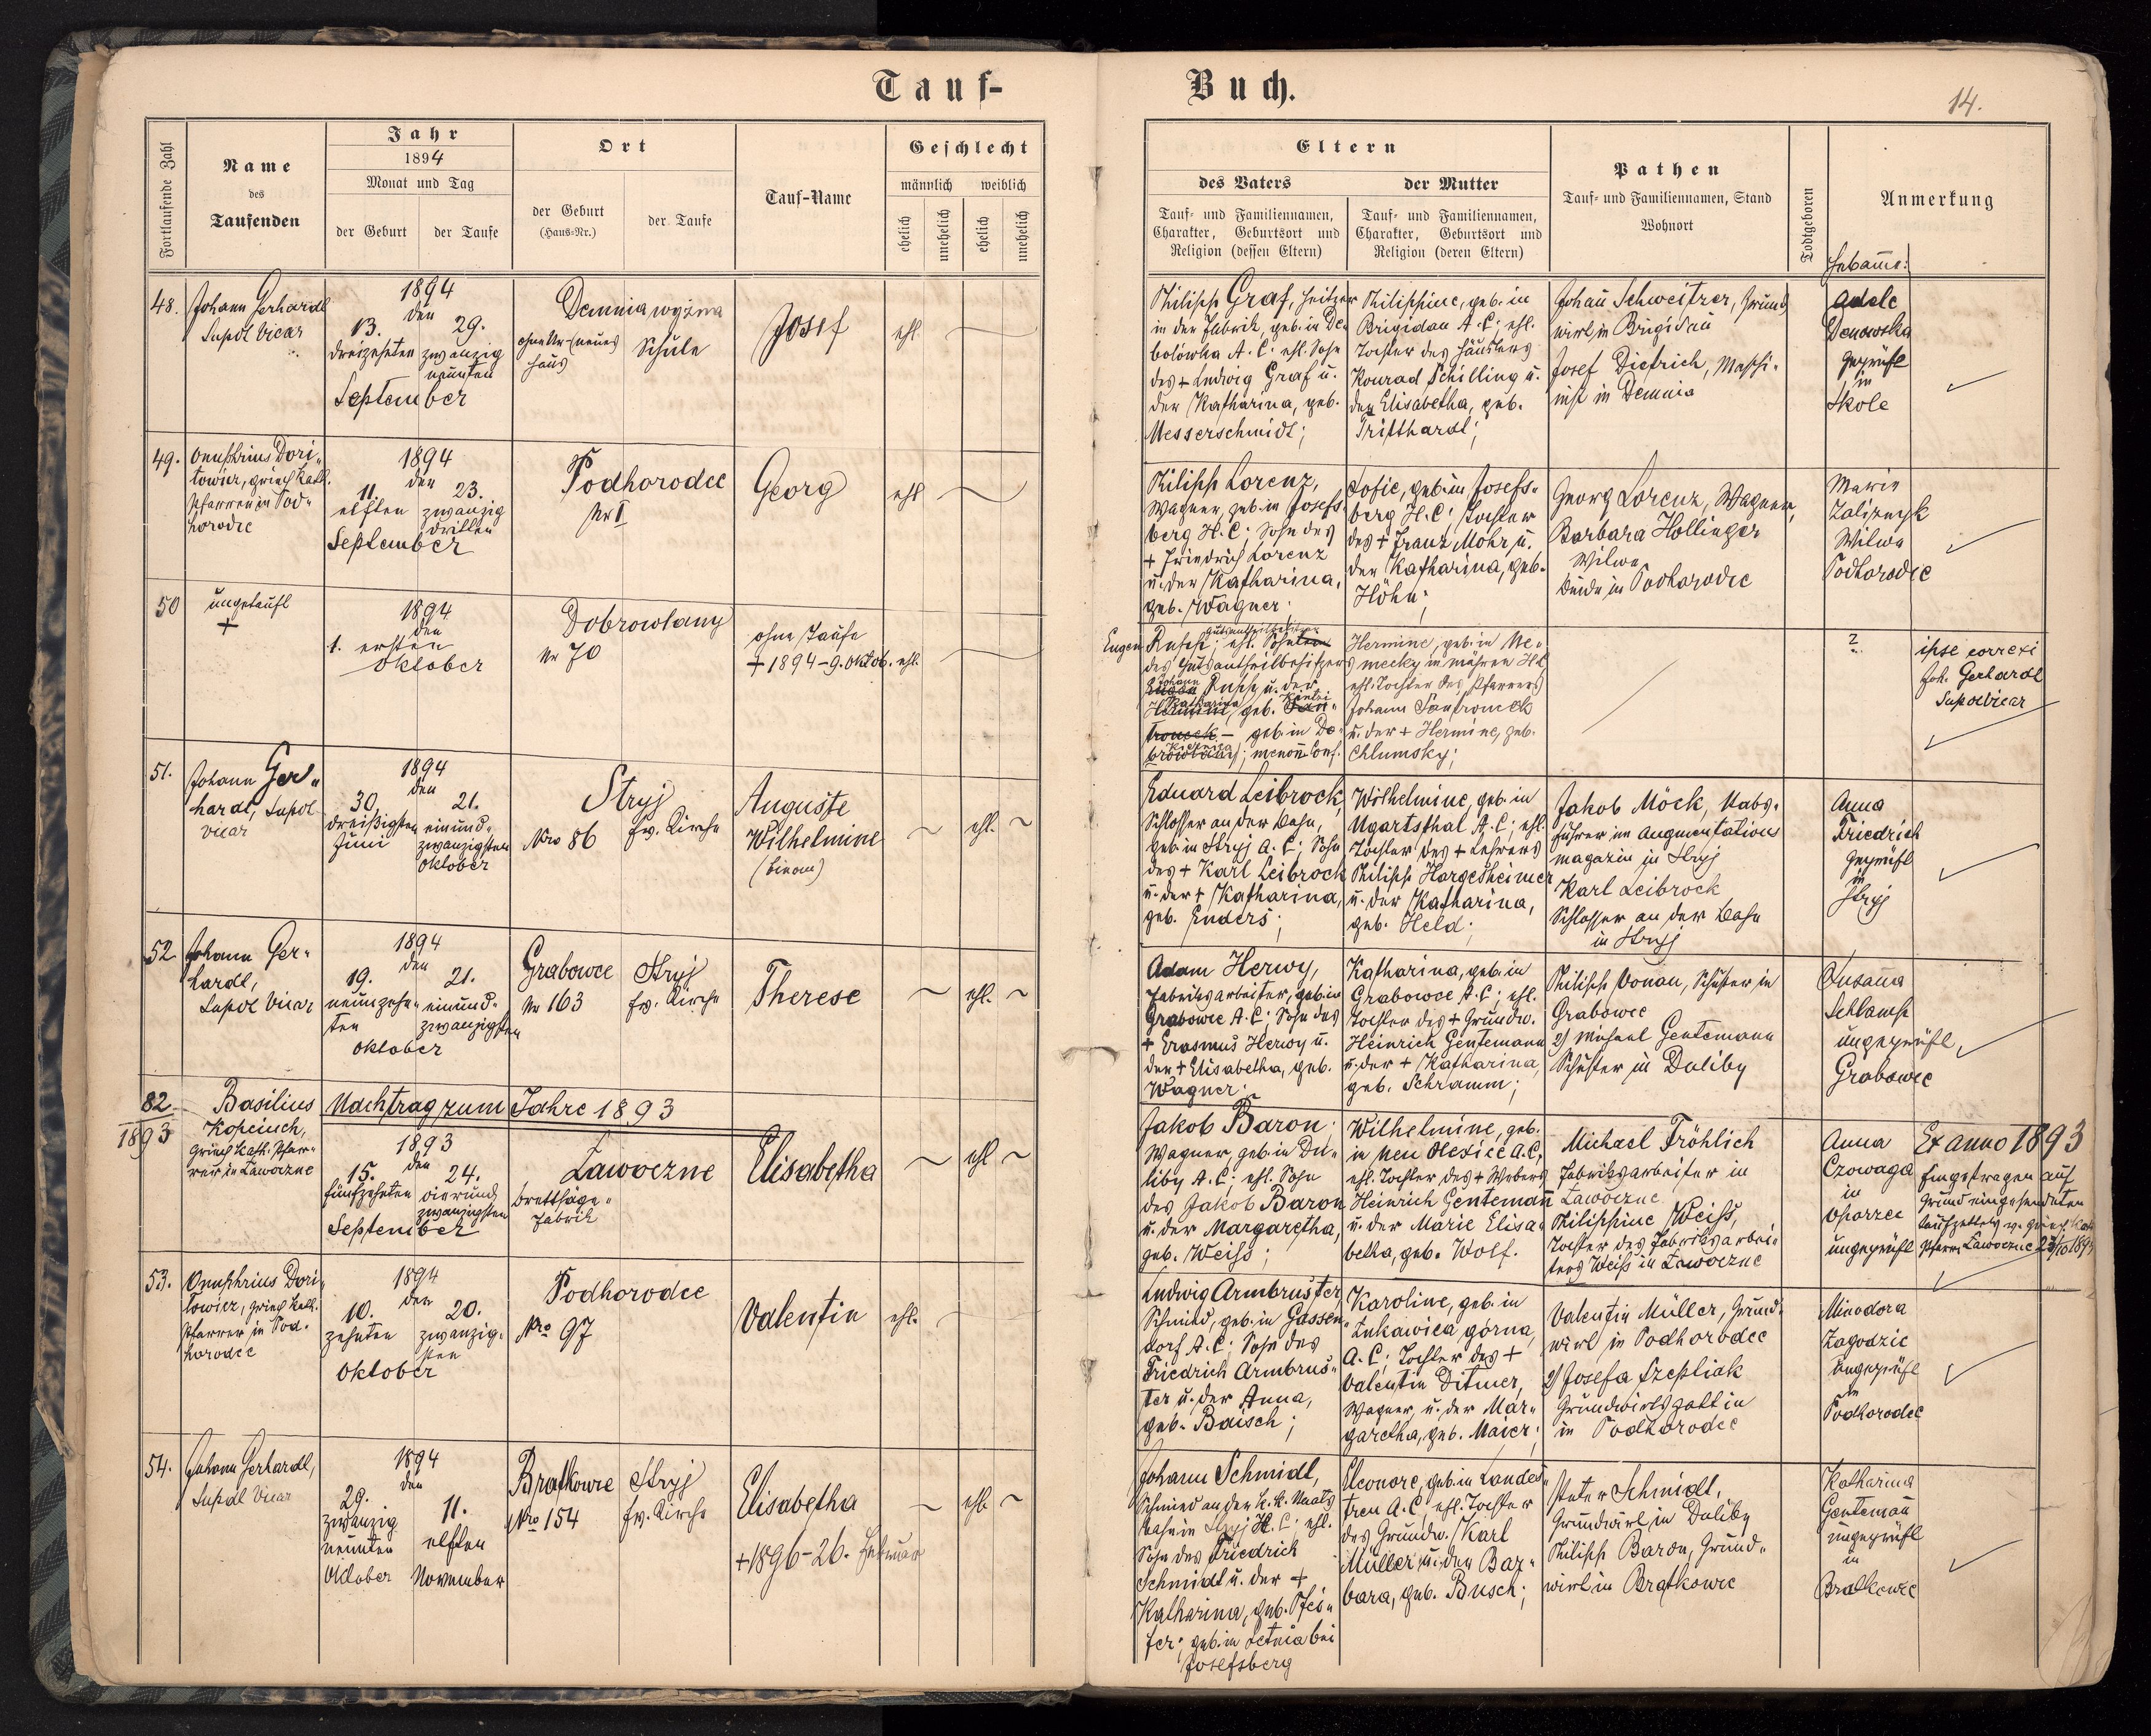 Tauf-
Buch.
14.
Fortlaufende Zahl
Name
des
Taufenden
Jahr
1894
Monat und Tag
der Geburt
der Taufe
Ort
der Geburt
(Haus-Nr.)
der Taufe
Tauf-Name
Geschlecht
männlich
weiblich
ehelich
unehelich
ehelich
unehelich
Eltern
des Vaters
Tauf- und Familiennamen,
Charakter, Geburtsort und
Religion (dessen Eltern)
der Mutter
Tauf- und Familiennamen,
Charakter, Geburtsort und
Religion (deren Eltern)
Pathen
Tauf- und Familiennamen, Stand
Wohnort
Todtgeboren
Anmerkung
Hebamme:
48.
Johann Gerhardt
Supdt Vicar
1894
den
13. 29.
dreizehnten zwanzig
neunten
September
Demnia wyżna
ohne Nr (neues
Haus
Schule
Josef
ehl.
Philipp Graf, Heitzer
in der Fabrik, geb. in De-
bolówka A. C. ehl. Sohn
des + Ludwig Graf u.
der Katharina, geb.
Messerschmidt;
Philippine, geb. in
Brigidau A. C; ehl.
Tochter des Häuslers
Konrad Schilling u.
der Elisabetha, geb.
Tritthardt;
Johann Schweitzer, Grund
wirt in Brigidau
Josef Dietrich, Maschi-
nist in Demnia
Adele
geprüft
in
Skole
49.
Onuphrius Dori-
towicz, griech kath.
Pfarrer in Pod-
horodce
1894
den
11. 23.
elften zwanzig
dritten
September
Podhorodce
Nr 1
Georg
ehl
Philipp Lorenz,
Wagner, geb. in Josefs-
berg H. C; Sohn des
+ Friedrich Lorenz
u. der Katharina,
geb. Wagner;
Sofie, geb. in Josefs-
berg H. C; Tochter
des + Franz Mohr u.
der Katharina, geb.
Höhn;
Georg Lorenz, Wagner,
Barbara Hollinger
Witwe
beide in Podhorodce
Marie
Zaliznyk
Witwe
Podhorodce
50
ungetauft
+
1894
den
1. ersten
Oktober
Dobrowlany
Nr 70
ohne Taufe
+ 1894-9. Oktob.
ehl.
Eugen
Rupp; ehl. Sohn
des Gutsantheilbesitzers
Johann Rupp u. der
Katharina, geb.
geb. in Do-
; menon. Conf.
Hermine, geb. in
in Mähren H C
ehl. Tochter des Pfarrers
Johann
u. der + Hermine, geb.
Chlumsky;
?
ipse correxi
Joh. Gerhardt
Supdtvicar
51.
Johann Ger-
hardt, Supdt
Vicar
1894
den
30. 21.
dreißigsten einund-
Juni zwanzigsten
Oktober
Stryj
Nro 86 ev. Kirche
Auguste
Wilhelmine
(binom)
ehl.
Eduard Leibrock,
Schlosser an der Bahn,
geb. in Stryj A. C; Sohn
des + Karl Leibrock
u. der + Katharina,
geb. Enders;
Wilhelmine, geb. in
Ugartsthal A. C; ehl.
Tochter des + Lehrers
Philipp Hargesheimer
u. der Katharina,
geb. Held;
Jakob Möck, Stabs-
führer im Augmentations
magazin in Stryj
Karl Leibrock
Schlosser an der Bahn
in Stryj
Anna
Friedrich
geprüft
in
Stryj
52
Johann Ger-
hardt,
Supdt Vicar
1894
den
19. 21.
neunzehn- einund-
ten zwanzigsten
Oktober
Grabowce Stryj
Nr 163 ev. Kirche
Therese
ehl.
Adam Herwy,
Fabriksarbeiter, geb. in
Grabowce A. C; Sohn des
+ Erasmus Herwy u.
der + Elisabetha, geb.
Wagner;
Katharina, geb. in
Grabowce A. C; ehl.
Tochter des + Grundw.
Heinrich Gentemann
u. der + Katharina,
geb. Schramm;
Philipp Donau, Schuster in
Grabowce
2) Michael Gentemann
Schuster in Duliby
Susana
Schlamp
ungeprüft,
Grabowce
82
1893
Basilius
Kopciuch,
griech kath. Pfar-
rer in Lawoczne
Nachtrag zum Jahre 1893
1893
den
15. 24.
fünfzehnten vierund
zwanzigsten
September
Lawoczne
Brettsäge-
Fabrik
Elisabetha
ehl
Jakob Baron;
Wagner, geb. in Du-
liby A. C; ehl. Sohn
des Jakob Baron
u. der Margaretha,
geb. Weiss;
Wilhelmine, geb.
in Neu Olexice A. C,
ehl. Tochter des + Webers
Heinrich Gentemann
u. der Marie Elisa-
betha, geb. Wolf.
Michael Fröhlich
Fabriksarbeiter in
Lawoczne
Philippine Weiss,
Tochter des Fabriksarbei-
ters Weiss in Lawoczne
Anna
Czowaga
in
Oporzec
ungeprüft
Ex anno 1893
Eingetragen auf
Grund eingesendeten
Taufzettels v. griech. kath
Pfarre Lawoczne 23/10 1894
53.
Onuphrius Dori-
towicz, griech kath.
Pfarrer in Pod-
horodce
1894
den
10. 20.
zehnten zwanzig-
sten
Oktober
Podhorodce
Nro 97
Valentin
ehl.
Ludwig Armbruster,
Schmied, geb. in Gassen-
dorf A. C; Sohn des
Friedrich Armbrus-
ter u. der Anna,
geb. Baisch;
Karoline, geb. in
Łukawica górna,
A. C; Tochter des +
Valentin Ditmer,
Wagner, u. der Mar-
garetha, geb. Maier;
Valentin Müller, Grund-
wirt in Podhorodce
2) Josefa Szepliak
Grundwirtsgatt in
in Podhorodce
Minodora
Zagodzic
ungeprüft
in
Podhorodce
54.
Johann Gerhardt,
Supdt Vicar
1894
den
29. 11.
zwanzig
neunten elften
Oktober November
Bratkowce Stryj
Nro 154 ev. Kirche
Elisabetha
+ 1896-26. Februar
ehl
Johann Schmidt,
Schmied an der k. k. Staats
bahn in Stryj H. C; ehl.
Sohn des Friedrich
Schmidt u. der +
Katharina, geb. Pfei-
fer; geb. in Letnia bei
Josefsberg
Eleonore, geb. in Landes-
treu A. C, ehl. Tochter
des Grundw. Karl
Müller u. der Bar-
bara, geb. Busch;
Peter Schmidt,
Grundwirt in Duliby
Philipp Baron, Grund-
wirt in Bratkowce
Katharina
Gentemann
ungeprüft
in
Bratkowce